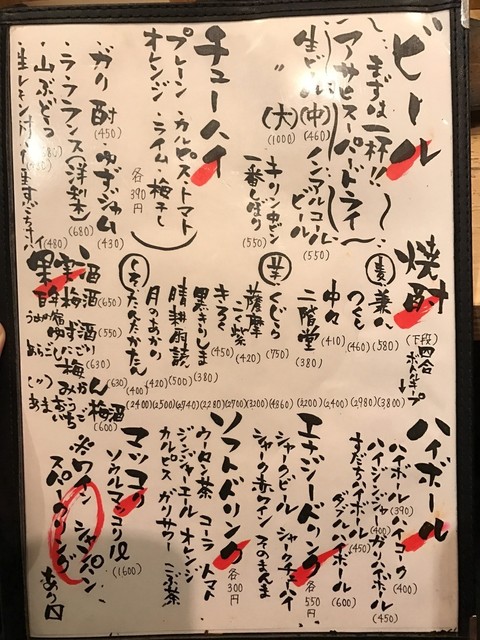 ビール
まずは一杯!!
アサヒスーパードライ
生ビール(中)(460)
〃 (大)(1000)
ノンアルコールビール(550)
キリン中ビン
一番しぼり(550)
チューハイ
プレーン・カルピス・トマト
オレンジ・ライム・梅干し
各390円
ガリ酎(450)
ゆずジャム(430)
ラフランス(洋梨)(680)
山ぶどう
(480)
焼酎
(下段)四合ボトルキープ
麦
兼八(580)
つくし(460)
中々(410)
二階堂(380)
芋
くじら(750)
薩摩こく紫(420)
きろく(450)
黒きりしま(380)
晴耕雨読(500)
月のあかり(420)
しそ
たんたかたん(400)
(3800)
(2980)
(2400)
(3200)
果実酒
梅酒(650)
ゆず(550)
(630)
みかん(630)
梅酒(600)
ハイボール
ハイボール(390)
ハイコーク(400)
ハイジンジャ(400)
ガリハイボール(450)
すだちハイボール(450)
ダブルハイボール(600)
エナジードリンク
各550円
シャークビール
シャークチューハイ
シャーク赤ワイン
そのまんま
ソフトドリンク
各300円
ウーロン茶 コーラ トマト
ジンジャーエール オレンジ
カルピス ガリサワー こぶ茶
マッコリ
ソウルマッコリ1ℓ(1600)
※ワイン シャンパン
スパークリング
あり〼